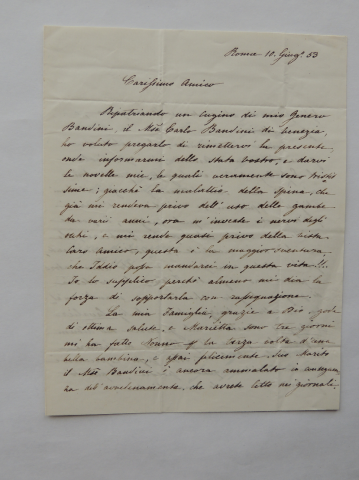 Roma 10. Giug.º 53
Carissimo Amico
Ripatriando un cugino di mio Genero
Bandini, il Mse Carlo Bandini di
ho voluto pregarlo di rimettervi la presente
onde informarmi dello stato vostro, e darvi
le novelle mie, le quali veramente sono
sime; giacchè la malattia della Spina, che
già mi rendeva privo dell'uso delle gambe
da varii anni, ora m'investe i nervi degli
occhi, e mi rende quasi privo della vista
Caro Amico, questa è la maggior sventura,
che Iddio possa mandarci in questa vita!!.
Io lo supplico, perchè almeno mi dia la
forza di sopportarla con rassegnazione.
La mia Famiglia, grazie a Dio, gode
di ottima salute, e Marietta sono tre giorni
mi ha fatto Nonno per la terza volta d'una
bella bambina, e assai felicemente. Suo Marito
il Mse Bandini è ancora ammalato in conseguen
za dell'avvelenamento, che avrete letto nei giornali.